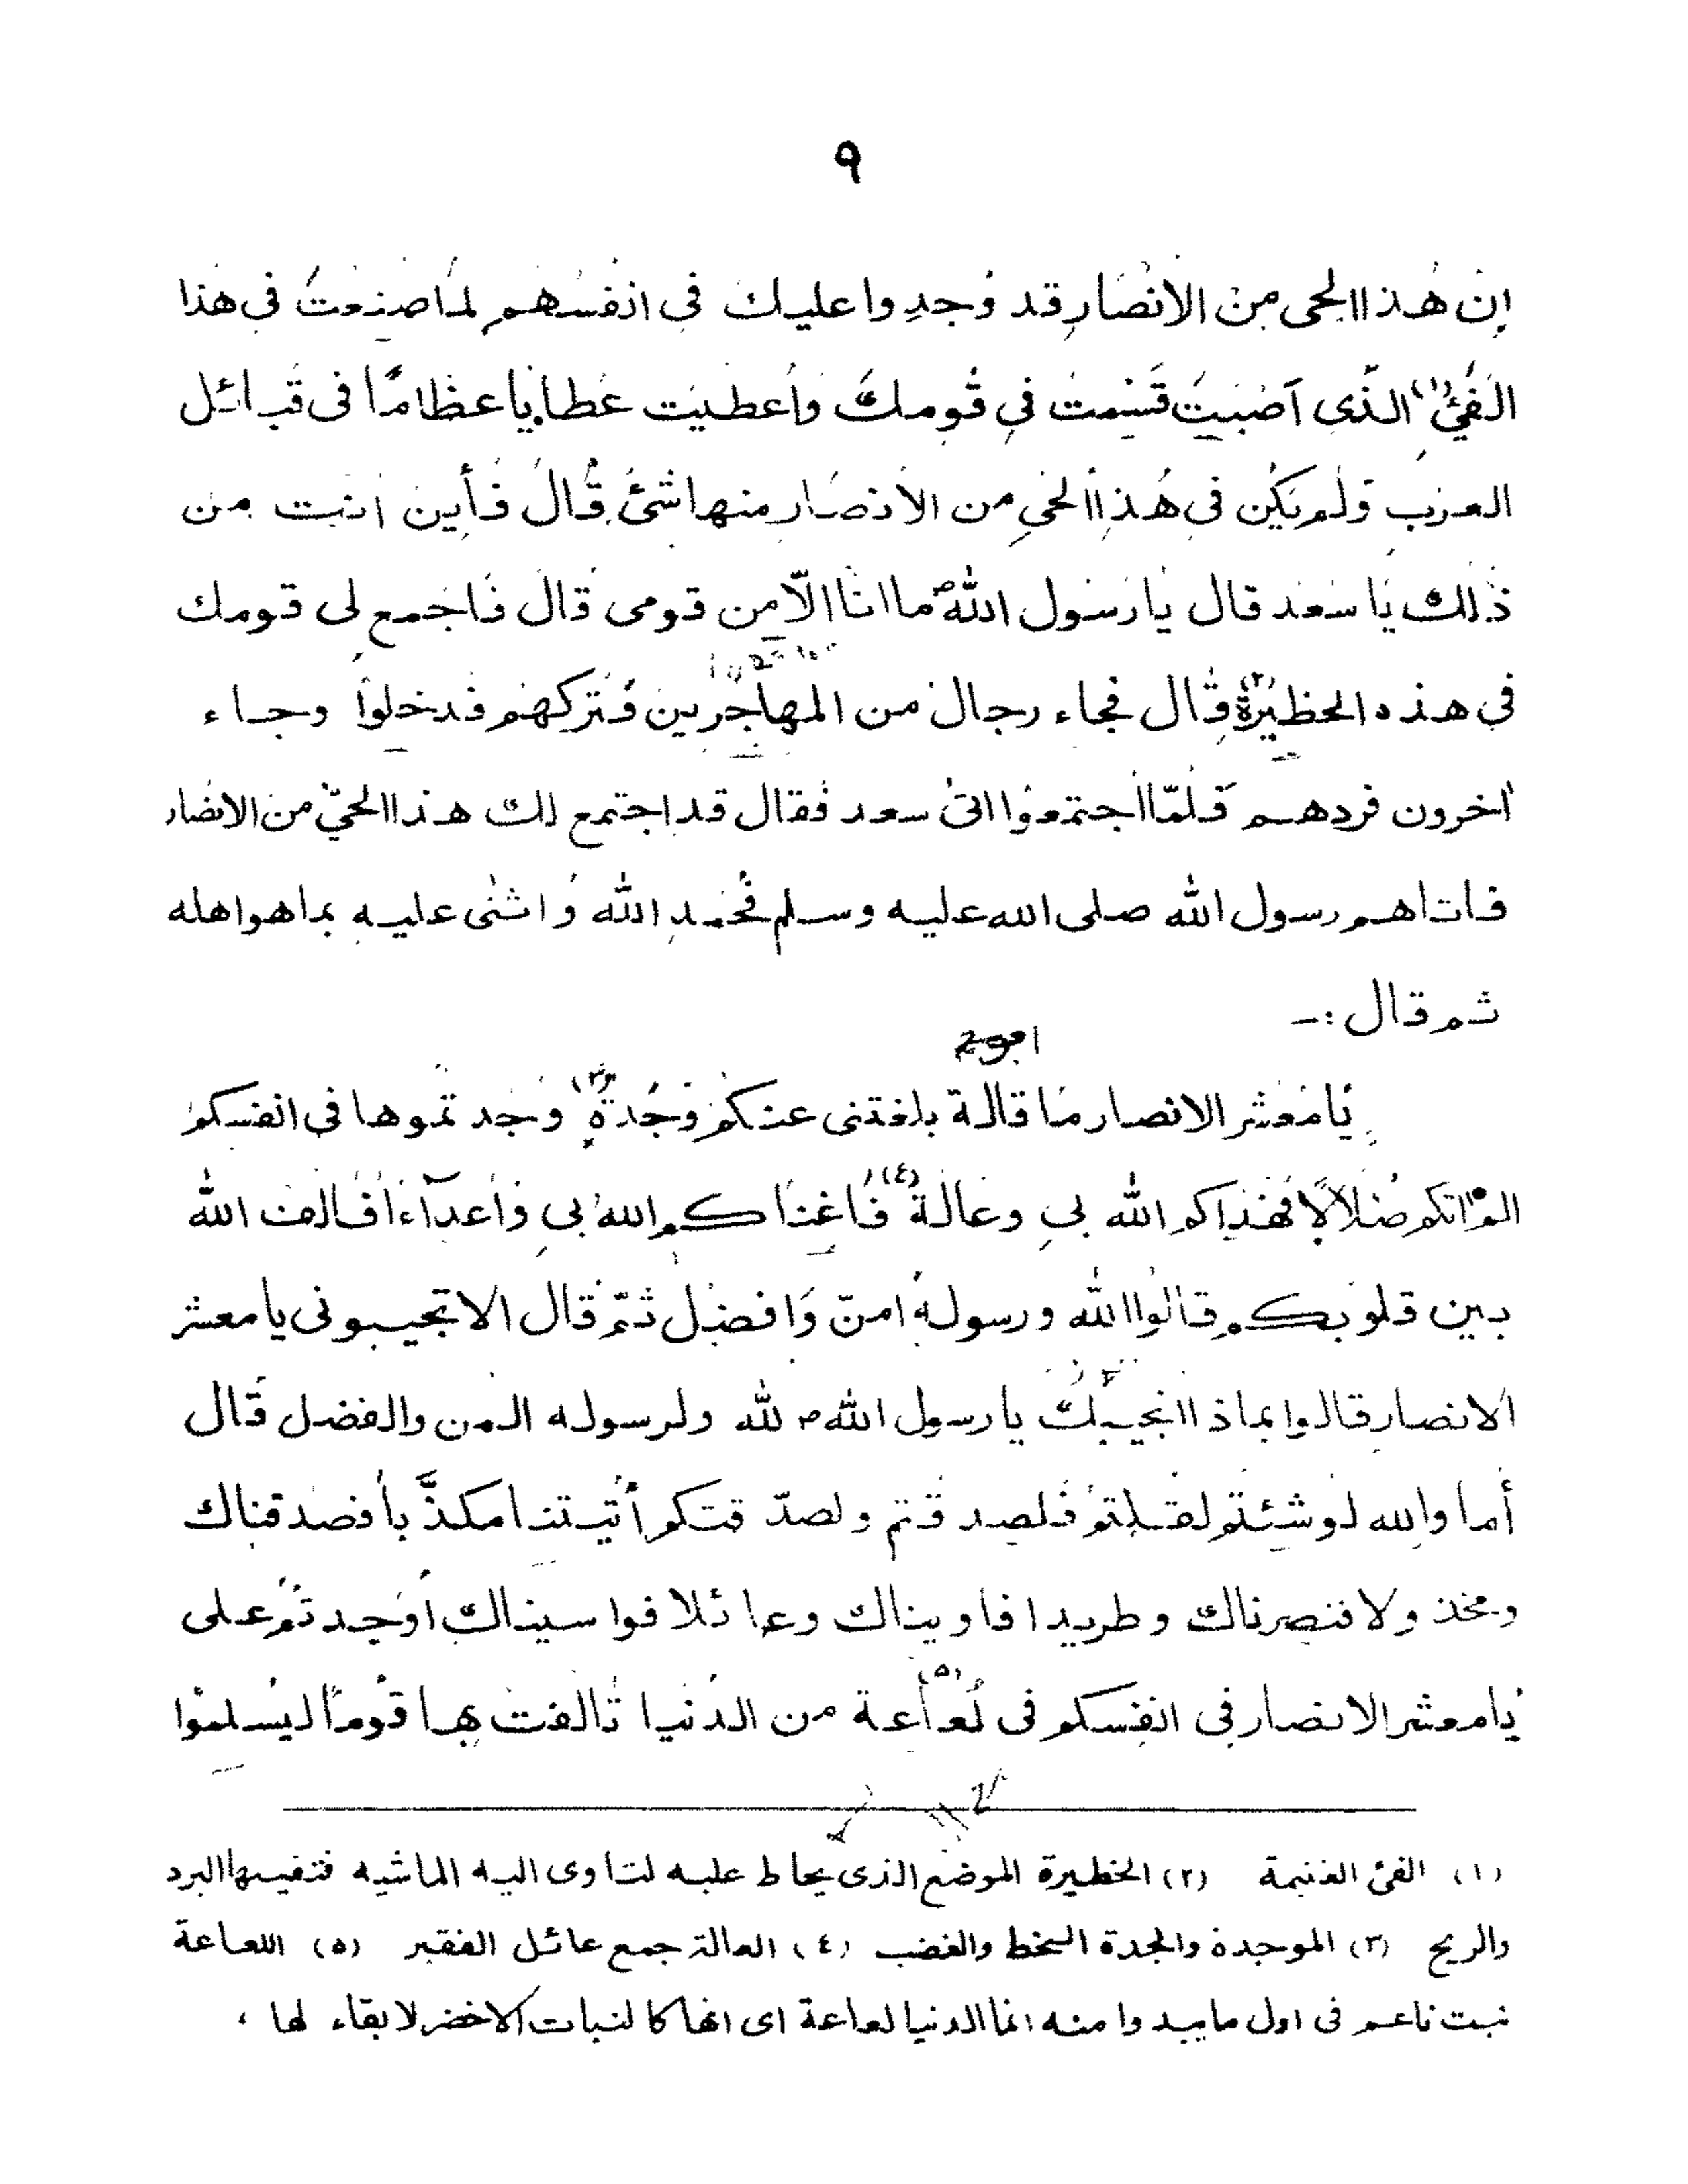 ٩
إن هذا الحى من الانصار قد وجدوا عليك فى انفسهم لما صنعت فى هذا
الفئ (١) الذى أصبت قسمت فى قومك وأعطيت عطايا عظاما فى قبائل
العرب ولم يكن فى هذا الحى من الانصار منها شئ قال فأين انت من
ذلك يا سعد قال يا رسول اللهؐ ما انا الّا من قومى قال فاجمع لى قومك
فى هذه الحظيرة (٢) قال فجاء رجال من المهاجرين فتركهم فدخلوا وجاء
اخرون فردهم فلمّا اجتمعوا اتى سعد فقال قد اجتمع لك هذا الحىّ من الانصار
فاتاهم رسول الله صلى الله عليه وسلم فحمد الله واثنى عليه بما هو اهله
ثم قال :-
يا معشر الانصار ما قالة بلغتنى عنكم وجدة (٣) وجدتموها فى انفسكم
الم اتكم ضلالا فهداكم الله بى وعالة (٤) فاغناكم الله بى واعدآء فالف الله
بين قلوبكم قالوا الله ورسوله امنّ وافضل ثمّ قال الا تجيبونى يا معشر
الانصار قالوا بماذا نجيبك يا رسول الله ص لله ولرسوله المن والفضل قال
أما والله لو شئتم لقلتم فلصدقتم ولصدّقتكم أتيتنا مكذّبا فصدقناك
ومخذولا فنصرناك وطريدا فاويناك وعائلا فواسيناك أوجدتم على
يا معشر الانصار فى انفسكم فى لعاعة (٥) من الدنيا تالفت بها قوما ليسلموا
(١) الفئ الغنيمة (٢) الحظيرة الموضع الذى يحاط عليه لتاوى اليه الماشيه فتقيها البرد
والريح (٣) الموجدة والجدة السخط والغضب (٤) العالة جمع عائل الفقير (٥) اللعاعة
نبت ناعم فى اول ما يبدوا منه انما الدنيا لعاعة اى انها كالنبات الاخضر لا بقاء لها ،